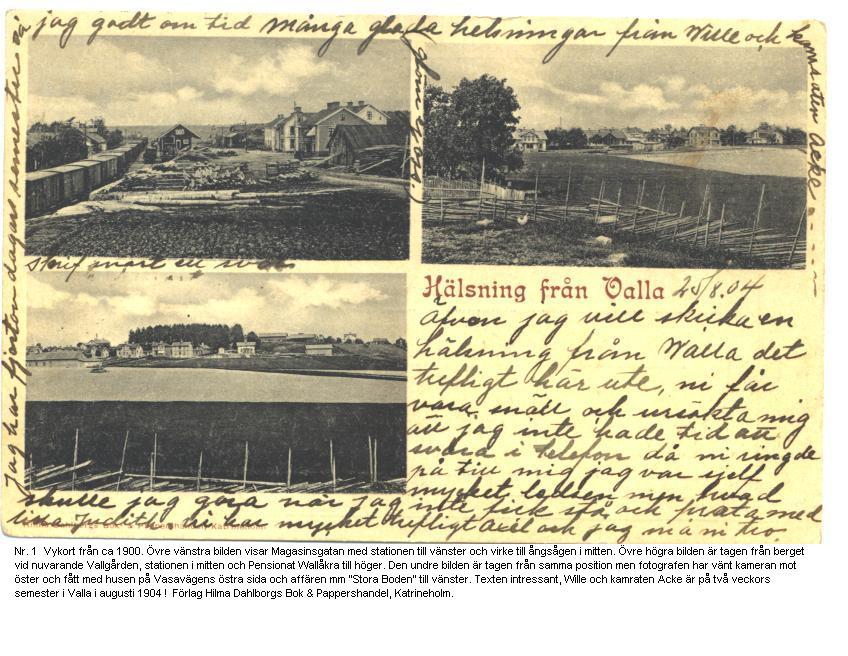 Hälsning från Valla 25/8.04
Äfven jag vill skicka en
hälsning från Walla det
trefligt här ute, ni får
vara snäll och ursäkta mig
att jag inte hade tid att
svara i telefon då ni ringde
på till mig jag var sjelf
mycket ledsen men hvad
skulle jag göra när jag inte fick stå och prata med
hi har mycket trefligt Axel och jag må ni tro.
Jag har fjorton dagars semester så
jag godt om tid många glada helsningar från Wille och
kamraten Acke
skrif snart ett svar
Hilma Dahlborgs Bok- & Pappershandel, Katrineholm
Nr. 1 Vykort från ca 1900. Övre vänstra bilden visar Magasinsgatan med stationen till vänster och virke till ångsågen i mitten. Övre högra bilden är tagen från berget
vid nuvarande Vallgården, stationen i mitten och Pensionat Wallåkra till höger. Den undre bilden är tagen från samma position men fotografen har vänt kameran mot
öster och fått med husen på Vasavägens östra sida och affären mm "Stora Boden" till vänster. Texten intressant, Wille och kamraten Acke är på två veckors
semester i Valla i augusti 1904 ! Förlag Hilma Dahlborgs Bok & Pappershandel, Katrineholm.